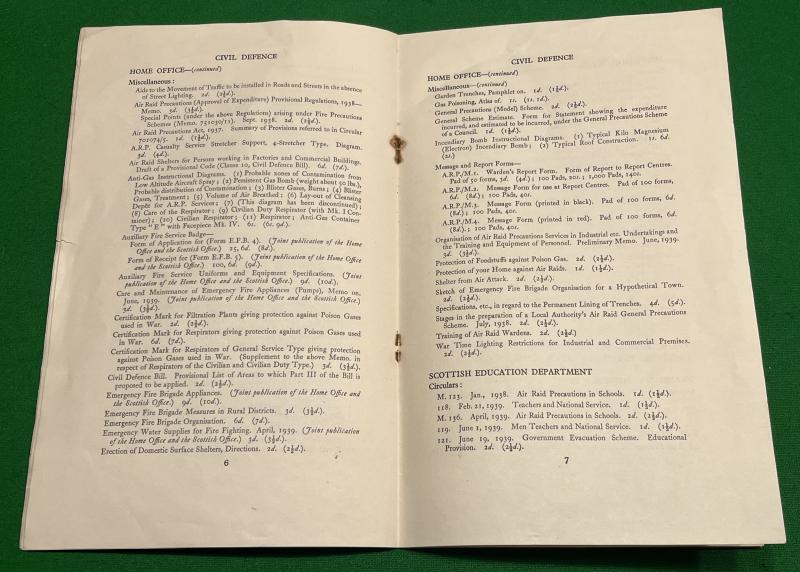 CIVIL DEFENCE
HOME OFFICE—(continued)
Miscellaneous :
Aids to the Movement of Traffic to be installed in Roads and Streets in the absence
of Street Lighting. 2d. (2½d.).
Air Raid Precautions (Approval of Expenditure) Provisional Regulations, 1938—
Memo. 3d. (3½d.).
Special Points (under the above Regulations) arising under Fire Precautions
Schemes (Memo. 751030/11). Sept. 1938. 2d. (2½d.).
Air Raid Precautions Act, 1937. Summary of Provisions referred to in Circular
701074/5. 1d. (1½d.).
A.R.P. Casualty Service Stretcher Support, 4-Stretcher Type. Diagram.
3d. (4d.).
Air Raid Shelters for Persons working in Factories and Commercial Buildings.
Draft of a Provisional Code (Clause 10, Civil Defence Bill). 6d. (7d.).
Anti-Gas Instructional Diagrams. (1) Probable zones of Contamination from
Low Altitude Aircraft Spray ; (2) Persistent Gas Bomb (weight about 50 lb.),
Probable distribution of Contamination ; (3) Blister Gases, Burns ; (4) Blister
Gases, Treatment ; (5) Volume of Air Breathed ; (6) Lay-out of Cleansing
Depôt for A.R.P. Services ; (7) (This diagram has been discontinued) ;
(8) Care of the Respirator ; (9) Civilian Duty Respirator (with Mk. I Con-
tainer) ; (10) Civilian Respirator ; (11) Respirator ; Anti-Gas Container
Type "E" with Facepiece Mk. IV. 6s. (6s. 9d.).
Auxiliary Fire Service Badge—
Form of Application for (Form E.F.B. 4). (Joint publication of the Home
Office and the Scottish Office.) 25, 6d. (8d.).
Form of Receipt for (Form E.F.B. 5). (Joint publication of the Home Office
and the Scottish Office.) 100, 6d. (9d.).
Auxiliary Fire Service Uniforms and Equipment Specifications. (Joint
publication of the Home Office and the Scottish Office.) 9d. (10d.).
Care and Maintenance of Emergency Fire Appliances (Pumps), Memo. on.
June, 1939. (Joint publication of the Home Office and the Scottish Office.)
3d. (3½d.).
Certification Mark for Filtration Plants giving protection against Poison Gases
used in War. 2d. (2½d.).
Certification Mark for Respirators giving protection against Poison Gases used
in War. 6d. (7d.).
Certification Mark for Respirators of General Service Type giving protection
against Poison Gases used in War. (Supplement to the above Memo. in
respect of Respirators of the Civilian and Civilian Duty Type.) 3d. (3½d.).
Civil Defence Bill. Provisional List of Areas to which Part III of the Bill is
proposed to be applied. 2d. (2½d.).
Emergency Fire Brigade Appliances. (Joint publication of the Home Office and
the Scottish Office.) 9d. (10d.).
Emergency Fire Brigade Measures in Rural Districts. 3d. (3½d.).
Emergency Fire Brigade Organisation. 6d. (7d.).
Emergency Water Supplies for Fire Fighting. April, 1939. (Joint publication
of the Home Office and the Scottish Office.) 3d. (3½d.).
Erection of Domestic Surface Shelters, Directions. 2d. (2½d.).
6
CIVIL DEFENCE
HOME OFFICE—(continued)
Miscellaneous—(continued)
Garden Trenches, Pamphlet on. 1d. (1½d.).
Gas Poisoning, Atlas of. 1s. (1s. 1d.).
General Precautions (Model) Scheme. 2d. (2½d.).
General Scheme Estimate. Form for Statement showing the expenditure
incurred, and estimated to be incurred, under the General Precautions Scheme
of a Council. 1d. (1½d.).
Incendiary Bomb Instructional Diagrams. (1) Typical Kilo Magnesium
(Electron) Incendiary Bomb ; (2) Typical Roof Construction. 1s. 6d.
(2s.)
Message and Report Forms—
A.R.P./M.1. Warden's Report Form. Form of Report to Report Centres.
Pad of 50 forms, 3d. (4d.) ; 100 Pads, 20s. ; 1,000 Pads, 140s.
A.R.P./M.2. Message Form for use at Report Centres. Pad of 100 forms,
6d. (8d.) ; 100 Pads, 40s.
A.R.P./M.3. Message Form (printed in black). Pad of 100 forms, 6d.
(8d.) ; 100 Pads, 40s.
A.R.P./M.4. Message Form (printed in red). Pad of 100 forms, 6d.
(8d.) ; 100 Pads, 40s.
Organisation of Air Raid Precautions Services in Industrial etc. Undertakings and
the Training and Equipment of Personnel. Preliminary Memo. June, 1939.
3d. (3½d.).
Protection of Foodstuffs against Poison Gas. 2d. (2½d.).
Protection of your Home against Air Raids. 1d. (1½d.).
Shelter from Air Attack. 2d. (2½d.).
Sketch of Emergency Fire Brigade Organisation for a Hypothetical Town.
2d. (2½d.).
Specifications, etc., in regard to the Permanent Lining of Trenches. 4d. (5d.).
Stages in the preparation of a Local Authority's Air Raid General Precautions
Scheme. July, 1938. 2d. (2½d.).
Training of Air Raid Wardens. 2d. (2½d.)
War Time Lighting Restrictions for Industrial and Commercial Premises.
2d. (2½d.).
SCOTTISH EDUCATION DEPARTMENT
Circulars :
M. 123. Jan., 1938. Air Raid Precautions in Schools. 1d. (1½d.).
118. Feb. 21, 1939. Teachers and National Service. 1d. (1½d.).
M. 136. April, 1939. Air Raid Precautions in Schools. 2d. (2½d.).
119. June 1, 1939. Men Teachers and National Service. 1d. (1½d.).
121. June 19, 1939. Government Evacuation Scheme. Educational
Provision. 2d. (2½d.).
7